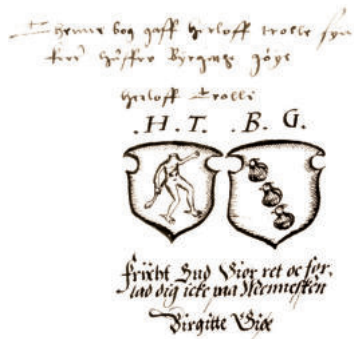 Thenne bog gaff herloff trolle syn
kere hustro Byrgitte gøye
herloff Trolle
.H.T. .B.G.
frücht Gud Giør ret oc for,
lad dig icke paa Mennesken
Birgitte Giøe